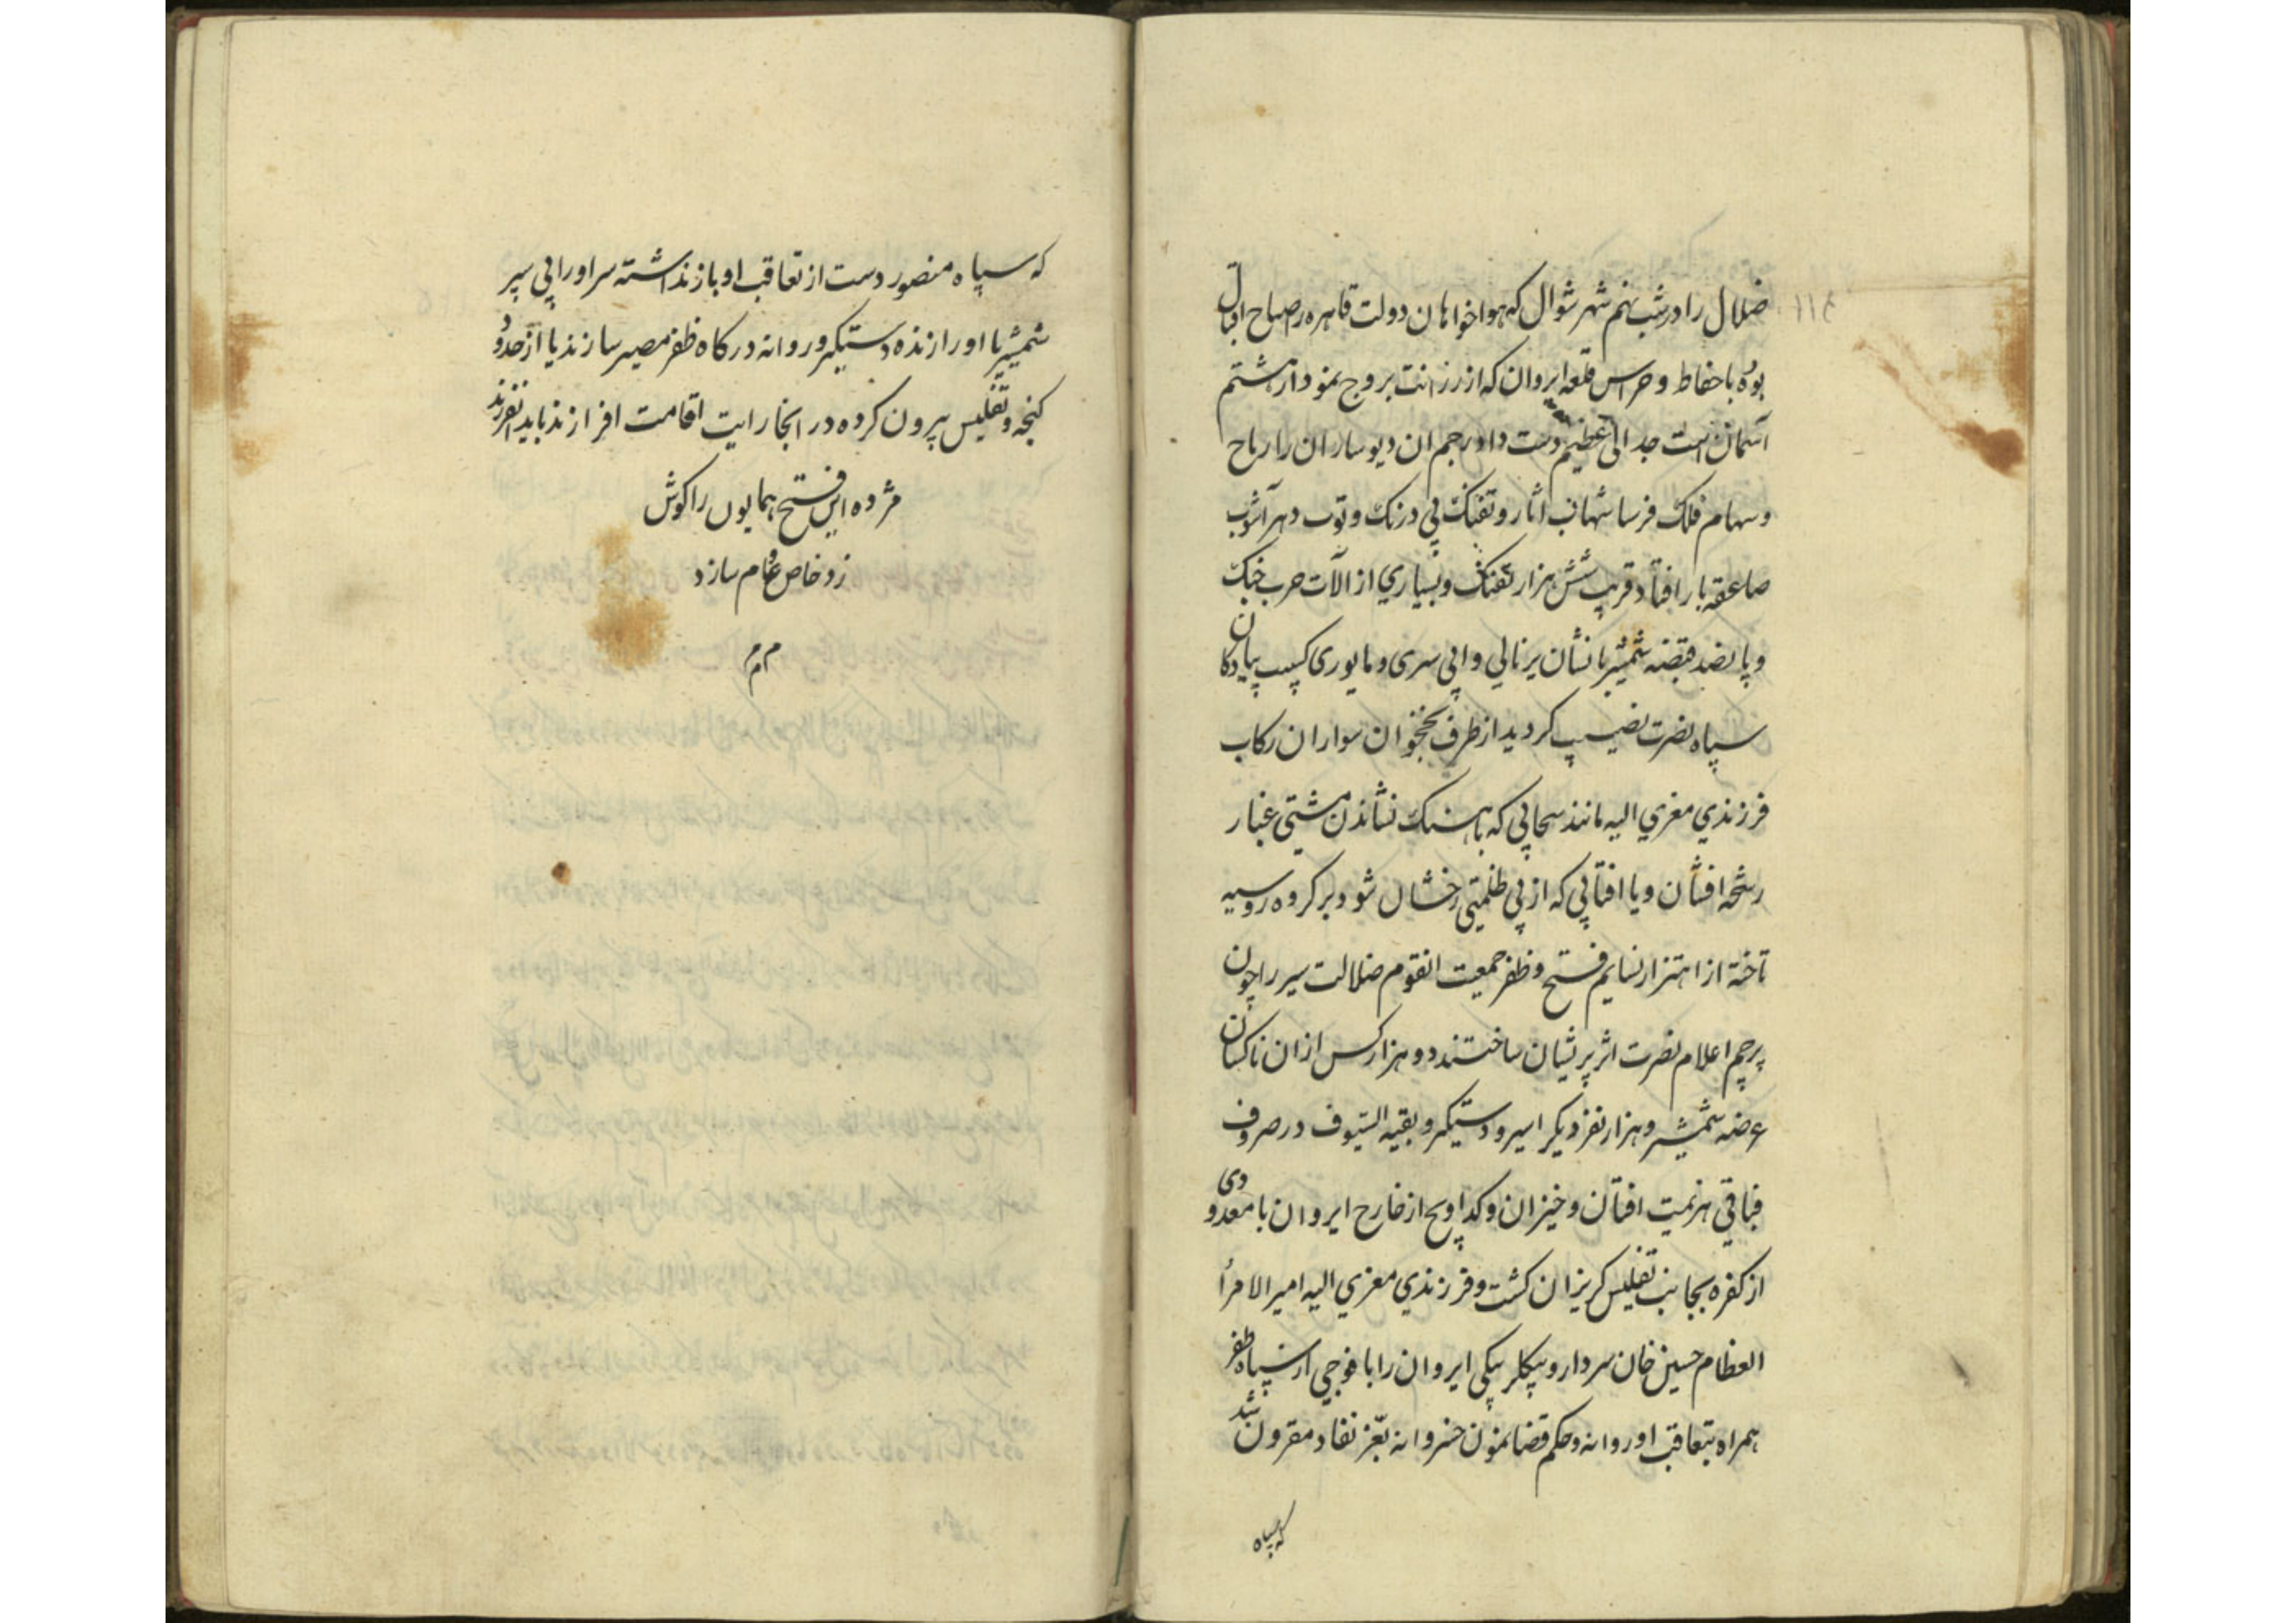 ضلال را در شب نهم شهر شوال که هواخواهان دولت قاهره را صباح اقبال
بوده با حفاظ و حراس قلعه ایروان که از رزانت بروج نمودار هشتم
آسمان است جدالی عظیم دست داد رجم ان دیوساران را رماح
و سهام فلک فرسا شهاب آثار و تفنک پی درنک و توپ دهر آشوب
صاعقه بار افتاد قریب شش هزار تفنک و بسیاری از الآت حرب جنک
و پانصد قبضه شمشیر با نشان یرنالی وافی سری و مایوری کسیب پیادکان
سپاه نصرت نصیب کردید از طرف نخجوان سواران رکاب
فرزندی معزی الیه مانند سحابی که باهنک نشاندن مشتی غبار
رشحه افشان و یا افتابی که از پی ظلمتی رخشان شود بر کروه روسیه
تاخته از اهتزار نسایم فتح و ظفر جمعیت انقوم ضلالت سیر را چون
پرچم اعلام نصرت اثر پریشان ساختند دو هزار کس ازان ناکسان
عرضه شمشیر و هزار نفر دیکر اسیر و دستیکر و بقیه السیوف در صروف
فیافی هزیمت افتان و خیزان و کداویچ از خارج ایروان با معدودی
از کفره بجانب تفلیس کریزان کشت و فرزندی معزی الیه امیر الامرأ
العظام حسین خان سردار و بیکلر بیکی ایروان را با فوجی از سپاه ظفر
همراه بتعاقب او روانه و حکم قضا نمون خسروانه بعز نفاد مقرون شد
که سپاه
که سپاه منصور دست از تعاقب او باز نداشته سر او را پی سپر
شمشیر یا او را زنده دستیکر و روانه درکاه ظفر مصیر سازند یا از حدود
کنجه و تفلیس بیرون کرده در انجا رایت اقامت افرازند باید انفرزند
مژده این فتح همایون را کوش
زد خاص و عام سازد
م م م